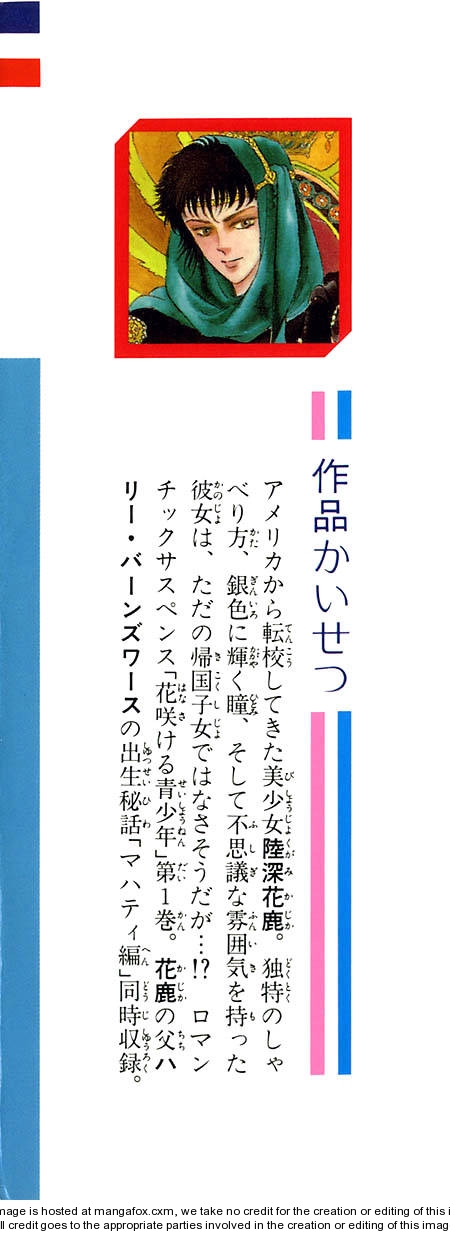 作品かいせつ
アメリカから転校してきた美少女陸深花鹿。独特のしゃ
べり方、銀色に輝く瞳、そして不思議な雰囲気を持った
彼女は、ただの帰国子女ではなさそうだが…!? ロマン
チックサスペンス「花咲ける青少年」第1巻。花鹿の父ハ
リー・バーンズワースの出生秘話「マハティ編」同時収録。
mage is hosted at mangafox.cxm, we take no credit for the creation or editing of this i
ll credit goes to the appropriate parties involved in the creation or editing of this imag